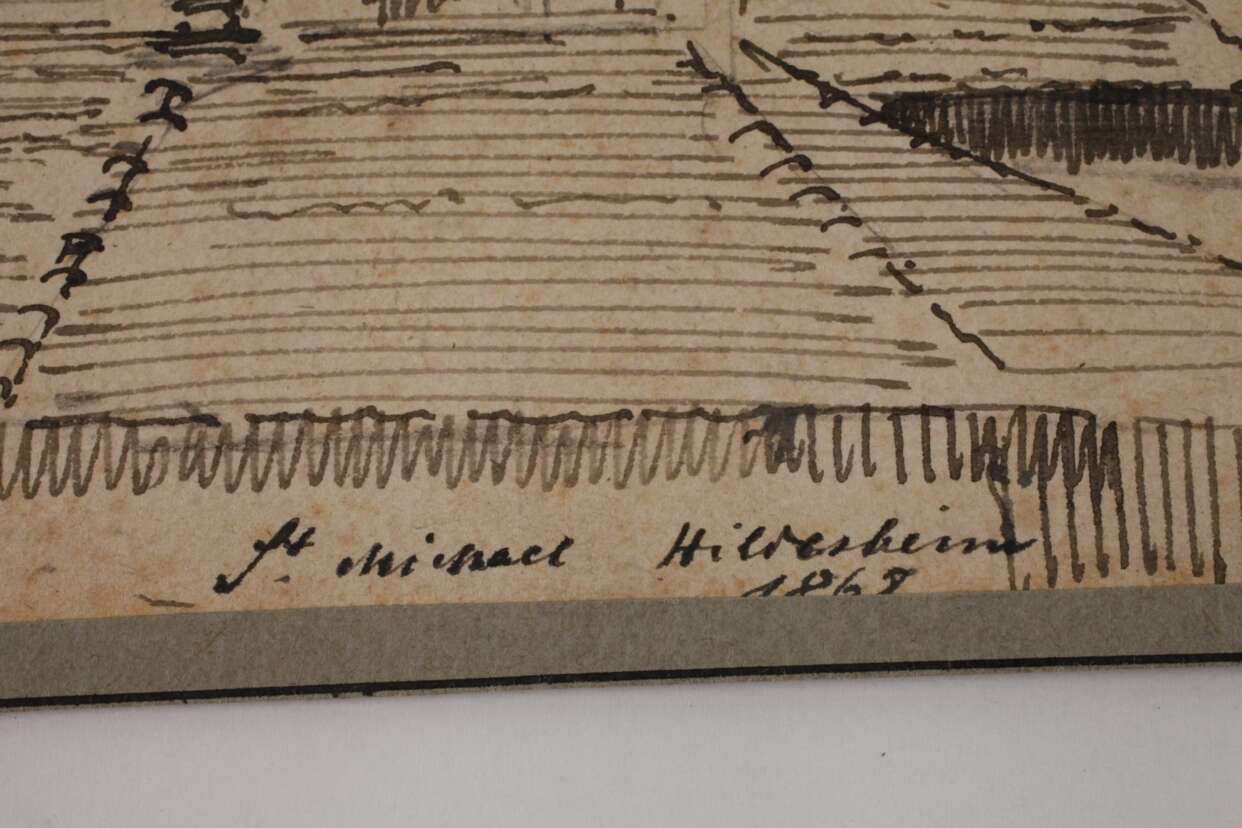 St. Michael Hildesheim
1868